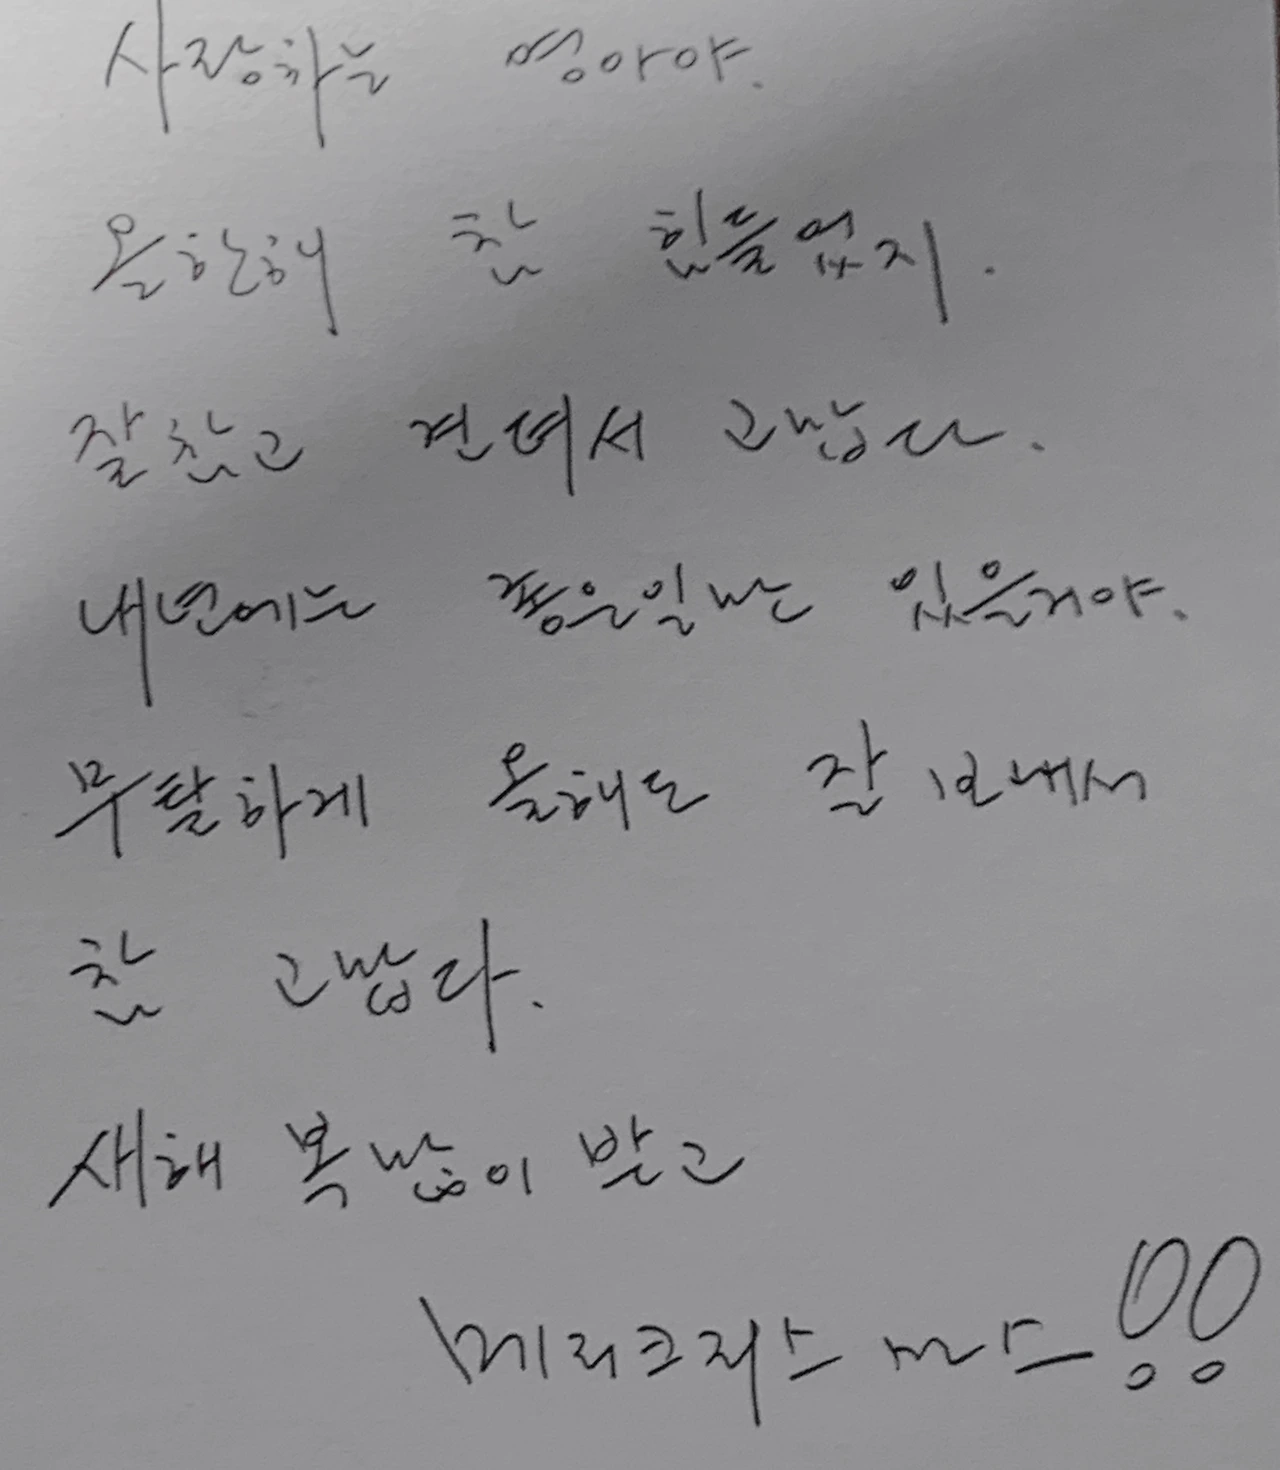 사랑하는 영아야.
올한해 참 힘들었지.
잘참고 견뎌서 고맙다.
내년에는 좋은일만 있을거야.
무탈하게 올해도 잘 보내서
참 고맙다.
새해 복많이 받고
메리크리스마스!!